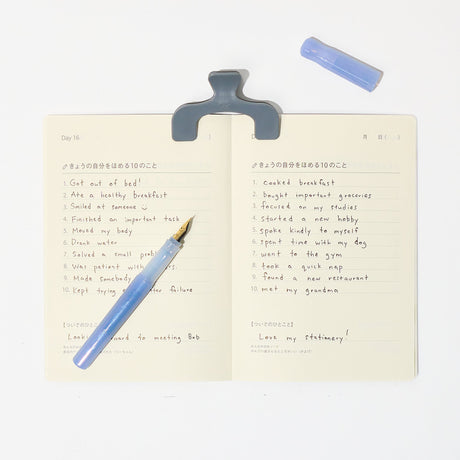 Day 16
きょうの自分をほめる10のこと
1. Got out of bed!
2. Ate a healthy breakfast
3. Smiled at someone
4. Finished an important task
5. Moved my body
6. Drank water
7. Solved a small
8. Was patient with
9. Made somebody
10. Kept trying failure
【ついでのひとこと】
to meeting Bob
月 日( )
きょうの自分をほめる10のこと
1. cooked breakfast
2. bought important groceries
3. focused on my studies
4. started a new hobby
5. spoke kindly to myself
6. spent time with my dog
7. went to the gym
8. took a quick nap
9. found a new restaurant
10. met my grandma
【ついでのひとこと】
Love my stationery!